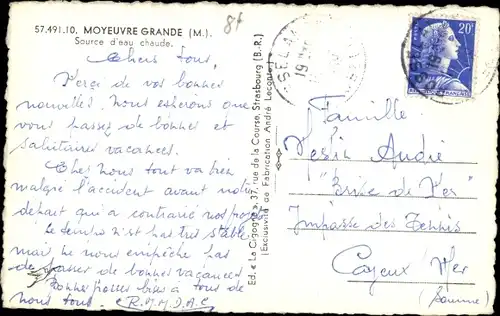 57.491.10. MOYEUVRE GRANDE (M.).
Source d'eau chaude.
8f
Chers tous,
Merci de vos bonnes
nouvelles. Nous espérons que
vous passez de bonnes et
salutaires vacances.
Chez nous tout va bien
malgré l'accident avant notre
départ qui a contrarié nos projets
Le temps n'est pas très stable
mais ne nous empêche pas
de passer de bonnes vacances
Bonnes grosses bises à tous de
nous tous. R.M.M.D.A.C
Ed. « La Cigogne », 37, rue de la Course, Strasbourg (B.-R.)
(Exclusivité de Fabrication André Leconte)
19
20F
Famille
André
"Brise de Mer"
Impasse des Tennis
Cayeux Mer
(Somme)